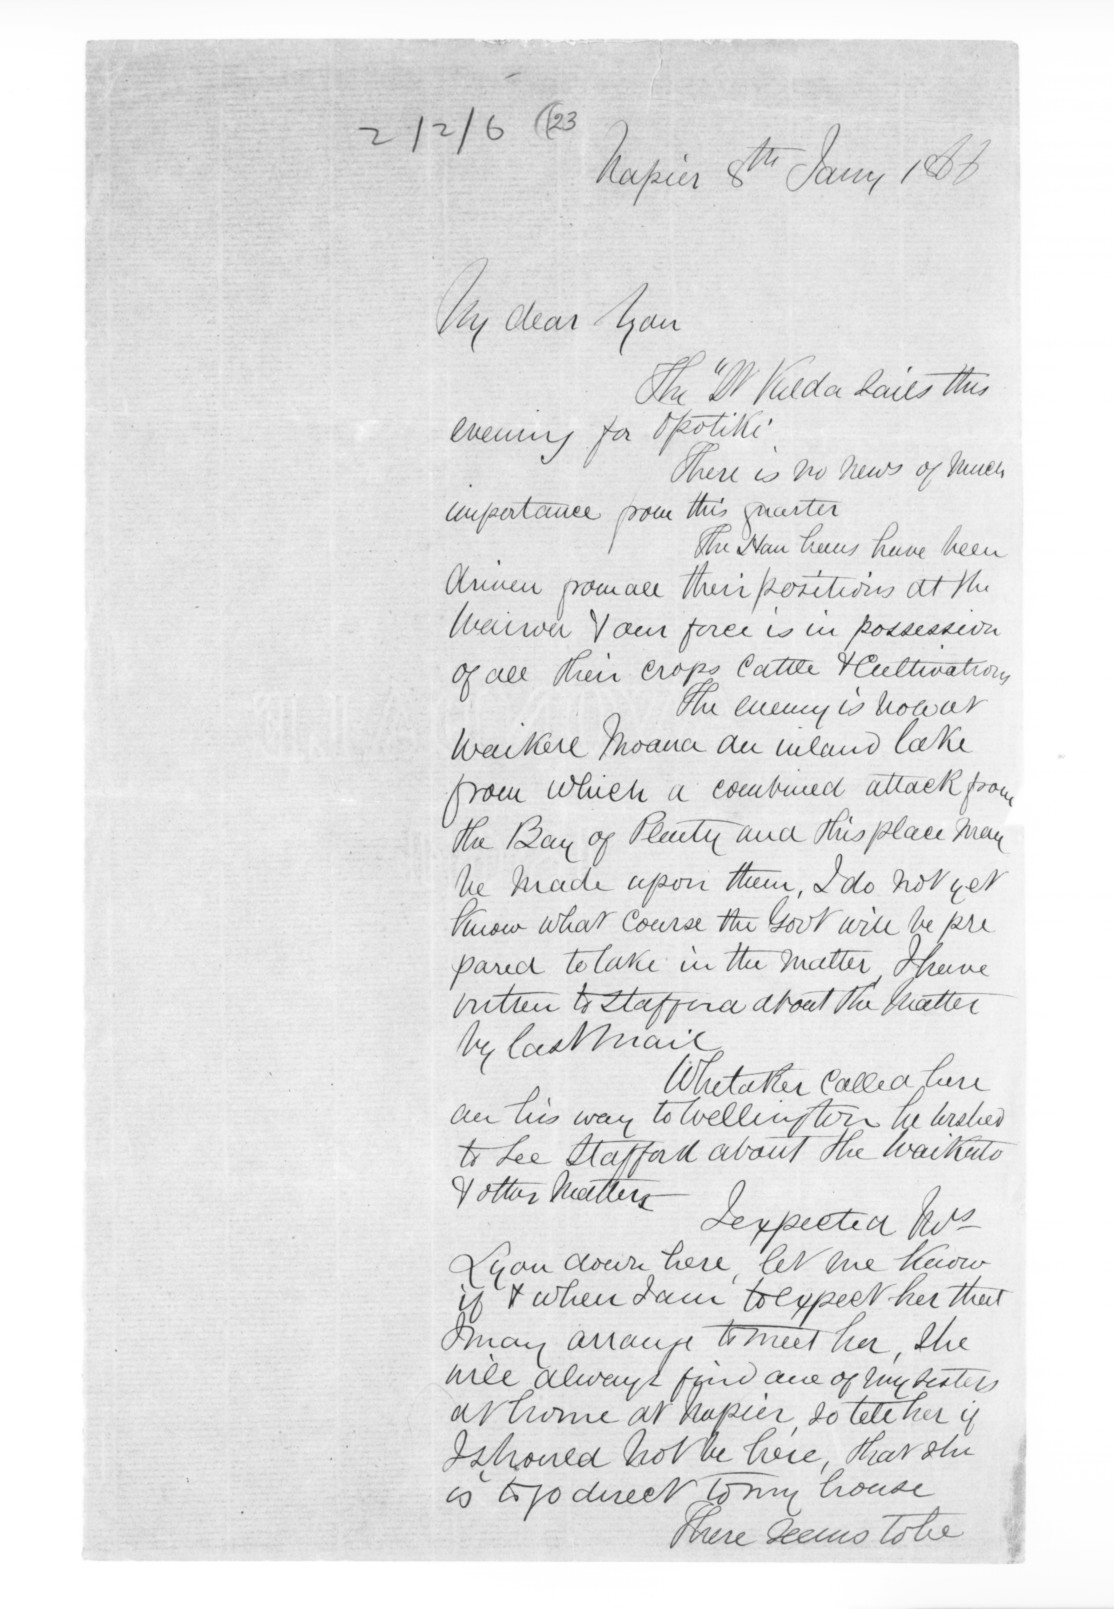 2/2/6 (23
Napier 8th Jany 1866
My dear Lyon
The "St Kilda sails this
evening for Opotiki
There is no news of much
importance from this quarter
The Hau haus have been
driven from all their positions at the
Wairoa & our force is in possession
of all their crops cattle & Cultivations
The enemy is now at
Waikere Moana an inland lake
from which a combined attack from
the Bay of Plenty and this place may
be made upon them, I do not yet
know what course the Govt will be pre
pared to take in the matter, I have
written to Stafford about the matter
by last Mail
Whitaker called here
on his way to Wellington he wished
to see Stafford about the Waikato
& other Matters
I expected Mrs
Lyon down here, let me know
if & when I am to expect her that
I may arrange to meet her, She
will always find one of my sisters
at home at Napier, so tell her if
I should not be here, that she
is to go direct to my house
There seems to be